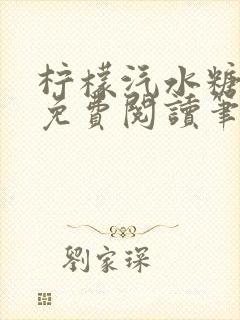 柠檬汽水糖
免費閱讀筆
劉家琛